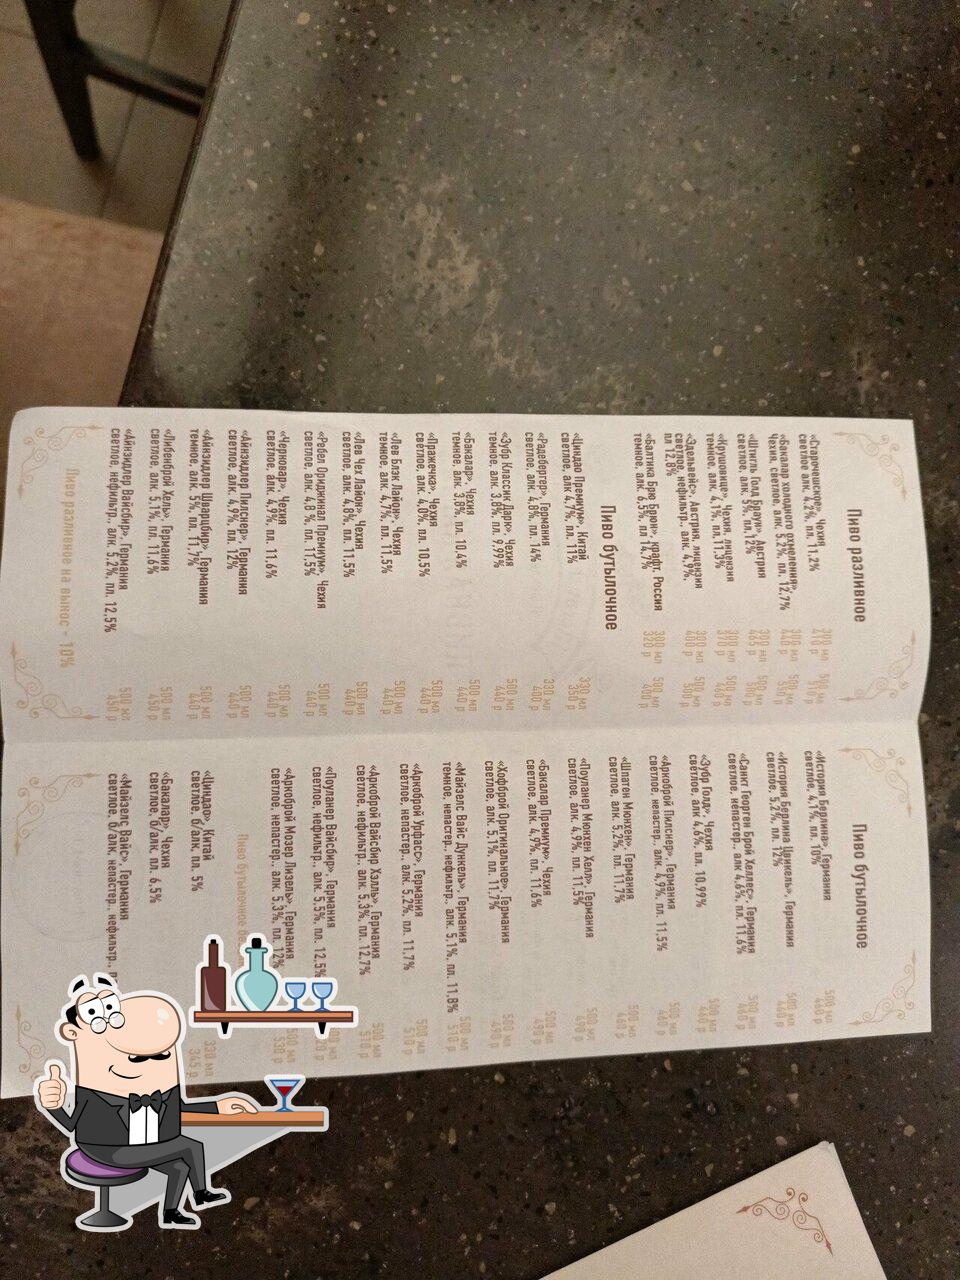 Пиво разливное
«Старочешское», Чехия
светлое алк. 4.2%, пл. 11,2%
300 мл 500 мл
«Бакалар холодного охмеления»,
Чехия, светлое, алк. 5,2%, пл. 12,7%
300 мл 500 мл
«Штигль Голд Браун», Австрия
светлое алк. 5%, пл.12%
300 мл 500 мл
«Крушовице», Чехия, лицензия
светлое алк. 4,1%, пл.11.3%
300 мл 500 мл
«Эдельвейс», Австрия, лицензия
светлое, нефильтр., алк. 4,9%,
пл 12,8%
300 мл 500 мл
«Балтика Брю Брюн», крафт, Россия
темное, алк. 6,5%, пл 14,7%
300 мл 500 мл
320 р 400 р
Пиво бутылочное
«Циндао Премиум», Китай
светлое алк 4,7%, пл. 11%
330 мл
«Радебергер», Германия
светлое, алк. 4,8%, пл. 14%
500 мл
400 р
«Зубр Классик Дарк», Чехия
темное, алк. 3.8%, пл. 9.99%
500 мл
440 р
«Бакалар», Чехия
темное, алк. 3,8%, пл. 10,4%
500 мл
440 р
«Пражечка», Чехия
светлое, алк. 4,0%, пл. 10,5%
500 мл
440 р
«Лев Блэк Лайон», Чехия
темное, алк. 4,7%, пл. 11,5%
500 мл
440 р
«Лев Чех Лайон», Чехия
светлое, алк. 4,8%, пл. 11,5%
500 мл
440 р
«Роял Ориджинал Премиум», Чехия
светлое, алк. 4,8 %, пл. 11,5%
500 мл
440 р
«Черновар», Чехия
светлое, алк. 4,9%, пл. 11,6%
500 мл
440 р
«Айнзидлер Пилснер», Германия
светлое, алк. 4,9%, пл. 12%
500 мл
440 р
«Айнзидлер Шварцбир», Германия
темное, алк. 5%, пл. 11,7%
500 мл
440 р
«Либенброй Хель», Германия
светлое, алк. 5,1%, пл. 11,6%
500 мл
450 р
«Айнзидлер Вайсбир», Германия
светлое, нефильтр., алк. 5,2%, пл. 12,5%
500 мл
450 р
Пиво разливное на вынос - 10%
Пиво бутылочное
«История Берлина», Германия
светлое, 4,1%, пл. 10%
500 мл
460 р
«История Берлина Цвикель», Германия
светлое, 5,2%, пл 12%
500 мл
460 р
«Санкт Георген Брой Хеллес», Германия
светлое, непастер., алк 4,6%, пл. 11,6%
500 мл
460 р
«Зубр Голд», Чехия
светлое, алк 4,6%, пл. 10,99%
500 мл
460 р
«Аркоброй Пилснер», Германия
светлое, непастер., алк. 4,9%, пл. 11,5%
500 мл
480 р
«Шпатен Мюнхен», Германия
светлое, алк. 5,2%, пл. 11,7%
500 мл
«Поуланер Мюнхен Хелл», Германия
светлое, алк. 4,9%, пл. 11,5%
500 мл
490 р
«Бакалар Премиум», Чехия
светлое, алк. 4,9%, пл. 11,6%
500 мл
490 р
«Хофброй Оригинальное», Германия
светлое, алк. 5,1%, пл. 11,7%
500 мл
490 р
«Майзелс Вайс Дункель», Германия
темное, непастер., нефильтр., алк. 5,1%, пл. 11,8%
500 мл
510 р
«Аркоброй Урфасс», Германия
светлое, непастер., алк. 5,2%, пл. 11,7%
500 мл
510 р
«Аркоброй Вайсбир Хэлль», Германия
светлое, нефильтр., алк. 5,3%, пл. 12,7%
500 мл
510 р
«Поуланер Вайсбир», Германия
светлое, нефильтр., алк. 5,5%, пл. 12,5%
«Аркоброй Мозер Лизель», Германия
светлое, непастер., алк. 5,3%, пл. 12%
500 мл
530 р
Пиво бутылочное
«Циндао», Китай
светлое, б/алк. пл. 5%
330 мл
345 р
«Бакалар», Чехия
светлое, б/алк, пл. 6,5%
«Майзелс Вайс», Германия
светлое, б/алк, непастер., нефильтр.,